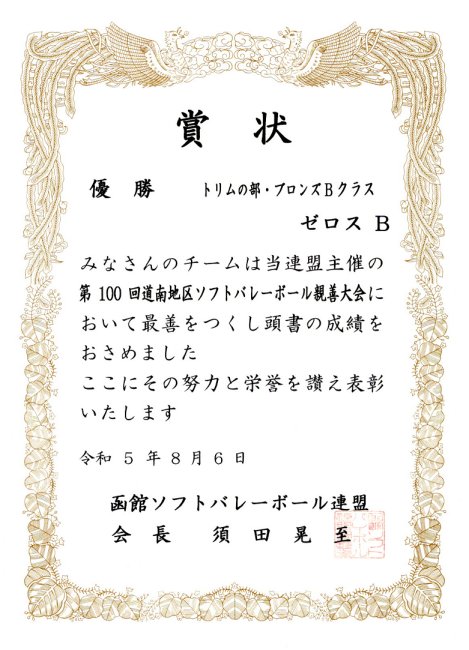 賞状
優勝 トリムの部・ブロンズBクラス
ゼロス B
みなさんのチームは当連盟主催の
第100回道南地区ソフトバレーボール親善大会に
おいて最善をつくし頭書の成績を
おさめました
ここにその努力と栄誉を讃え表彰
いたします
令和5年8月6日
函館ソフトバレーボール連盟
会長 須田晃至